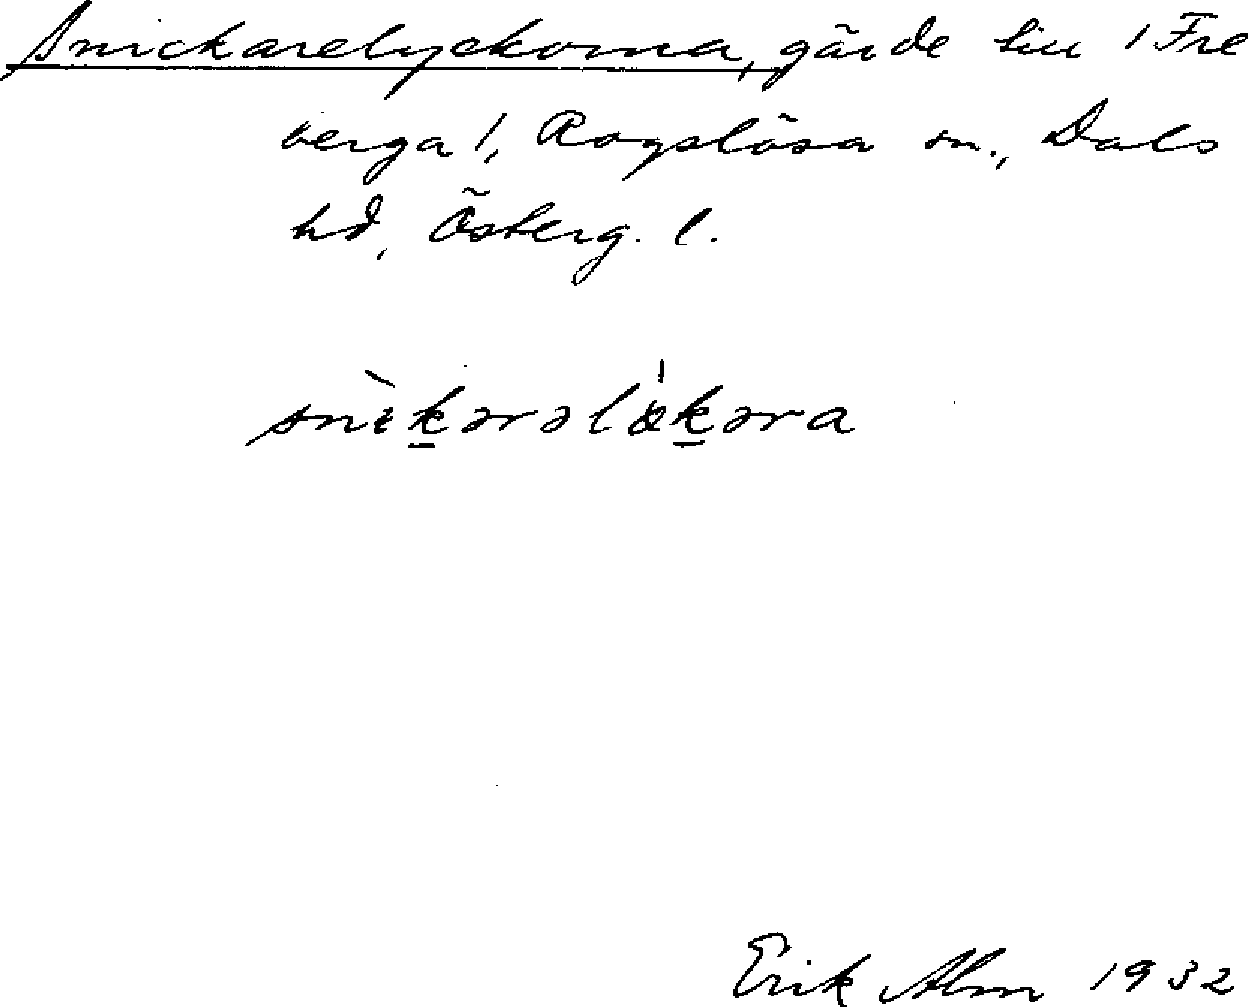 Snickarelyckorna, gärde till /Fre
berga/, Rogslösa sn., Dals
hd, Österg. l.
snìk̲ərəlø̍k̲əra
Erik Alm 1932